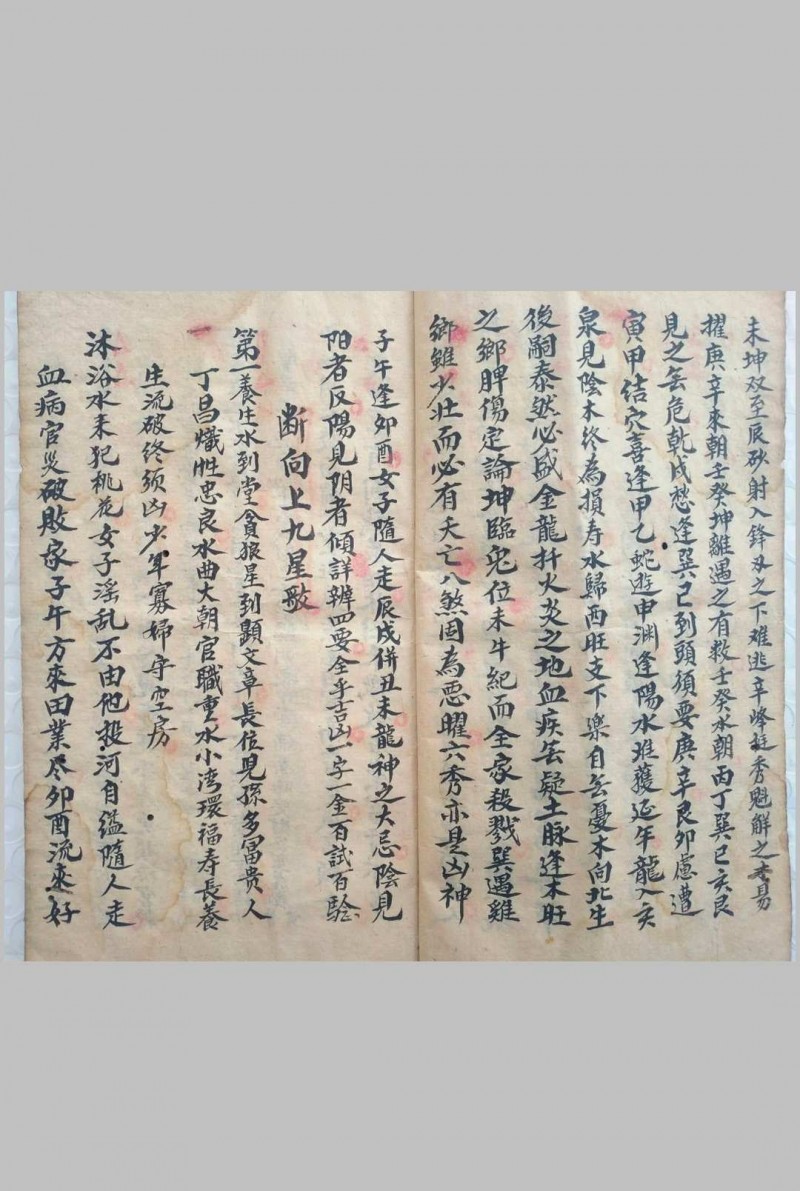 未坤双至辰砂射入鋒刃之下难逃辛峰挺秀魁解之未易
擢庚辛來朝壬癸坤離遇之有救壬癸水朝丙丁巽巳亥艮
見之無危乾戌愁逢巽巳到頭須要庚辛艮卯慮遭
寅甲结穴喜逢甲乙蛇遊申渊逢陽水难獲延年龍入亥
泉見陰木終為損寿水歸西旺支下樂自無憂木向北生
後嗣泰然必盛金龍扦火炎之地血疾無疑土脉逢木旺
之鄉脾傷定論坤臨兜位未牛紀而全家殺戮巽遇雞
鄉雖少壮而必有夭亡八煞固為惡曜六秀亦是凶神
子午逢卯酉女子隨人走辰戌併丑未龍神之大忌陰見
阳者反陽見阴者傾詳辨四要全乎吉凶一字一金百試百騐
断向上九星歌
第一養生水到堂貪狼星到顕文章長位児孫多冨贵人
丁昌熾性忠良水曲大朝官職重水小湾環福寿長養
生流破終须凶少年寡婦守空房
沐浴水来犯桃花女子淫乱不由他投河自缢隨人走
血病官災破敗家子午方來田業尽卯酉流來好